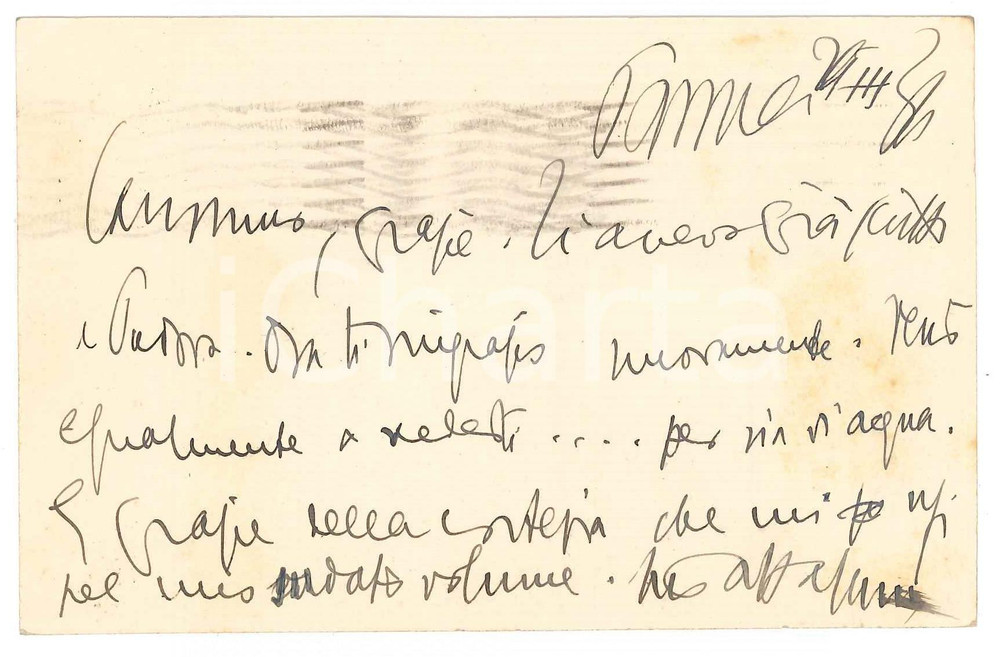 Carissimo, grazie. Ti avevo già scritto
a Padova. Ora ti ringrazio nuovamente. Verrò
egualmente a vederti ..... per via d'acqua.
E grazie della cortesia che mi usi
pel mio volume. tuo
iCharta